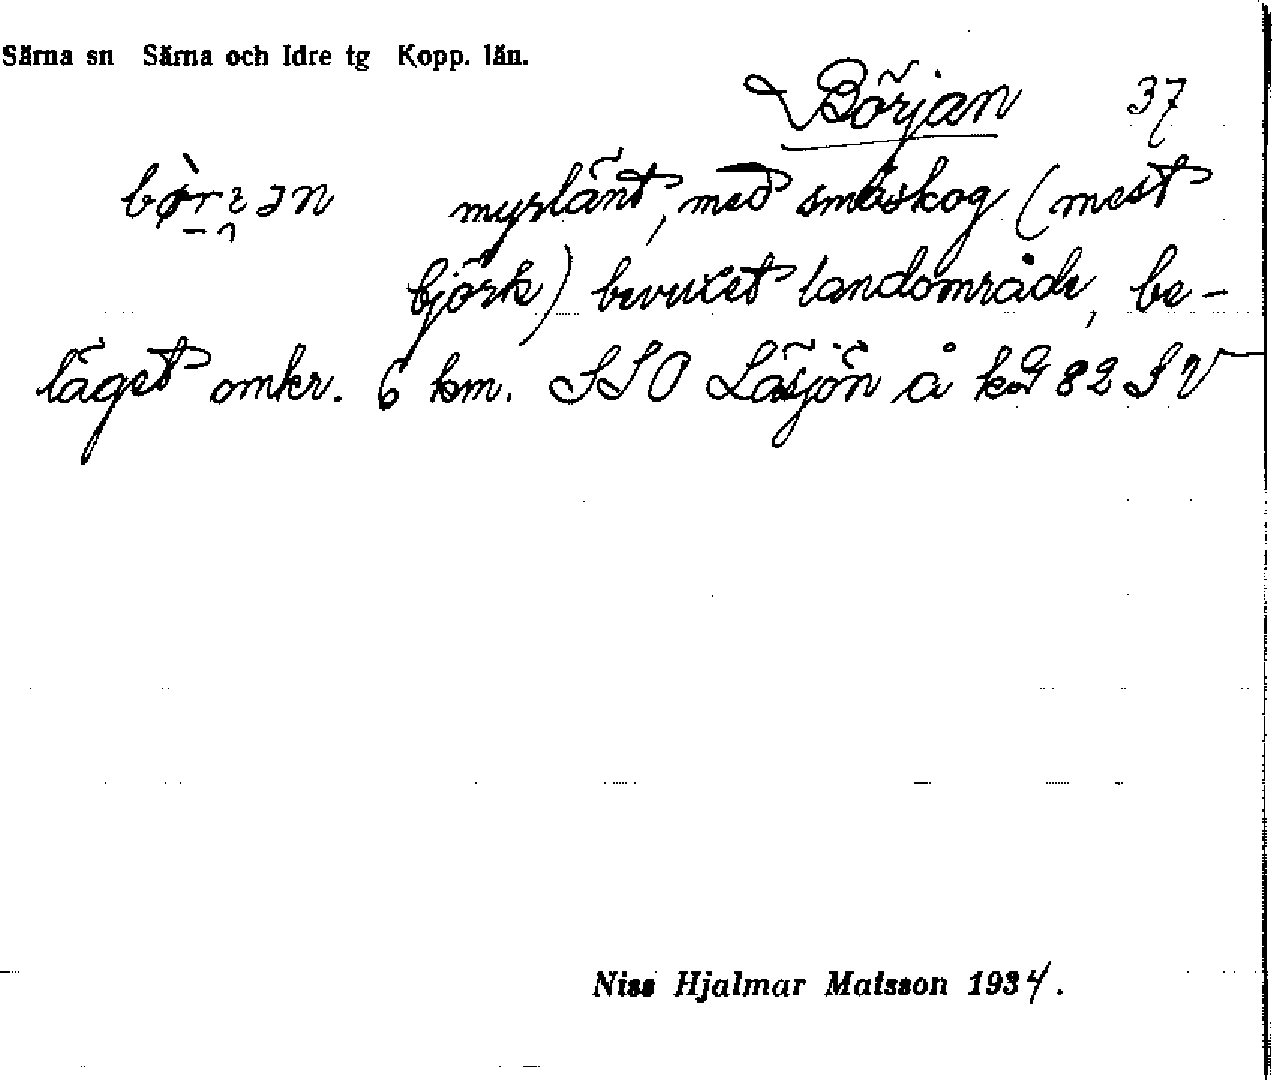 Särna sn Särna och Idre tg Kopp. län.
Början 37
myrlänt, med småskog (mest
björk) bevuxet landområde, be-
läget omkr. 6 km. SSO Läsjön å kbl 82 SV
Niss Hjalmar Matsson 1934.